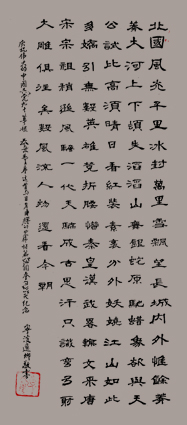 北國風光千里冰封萬里雪飄望長城內外惟餘莽
莽大河上下頓失滔滔山舞銀蛇原馳蠟象欲與天
公試比高須晴日看紅裝素裹分外妖嬈江山如此
多嬌引無數英雄競折腰惜秦皇漢武略輸文采唐
宗宋祖稍遜風騷一代天驕成吉思汗只識彎弓射
大雕俱往矣數風流人物還看今朝
慶祝偉大的中國共產黨九十華誕